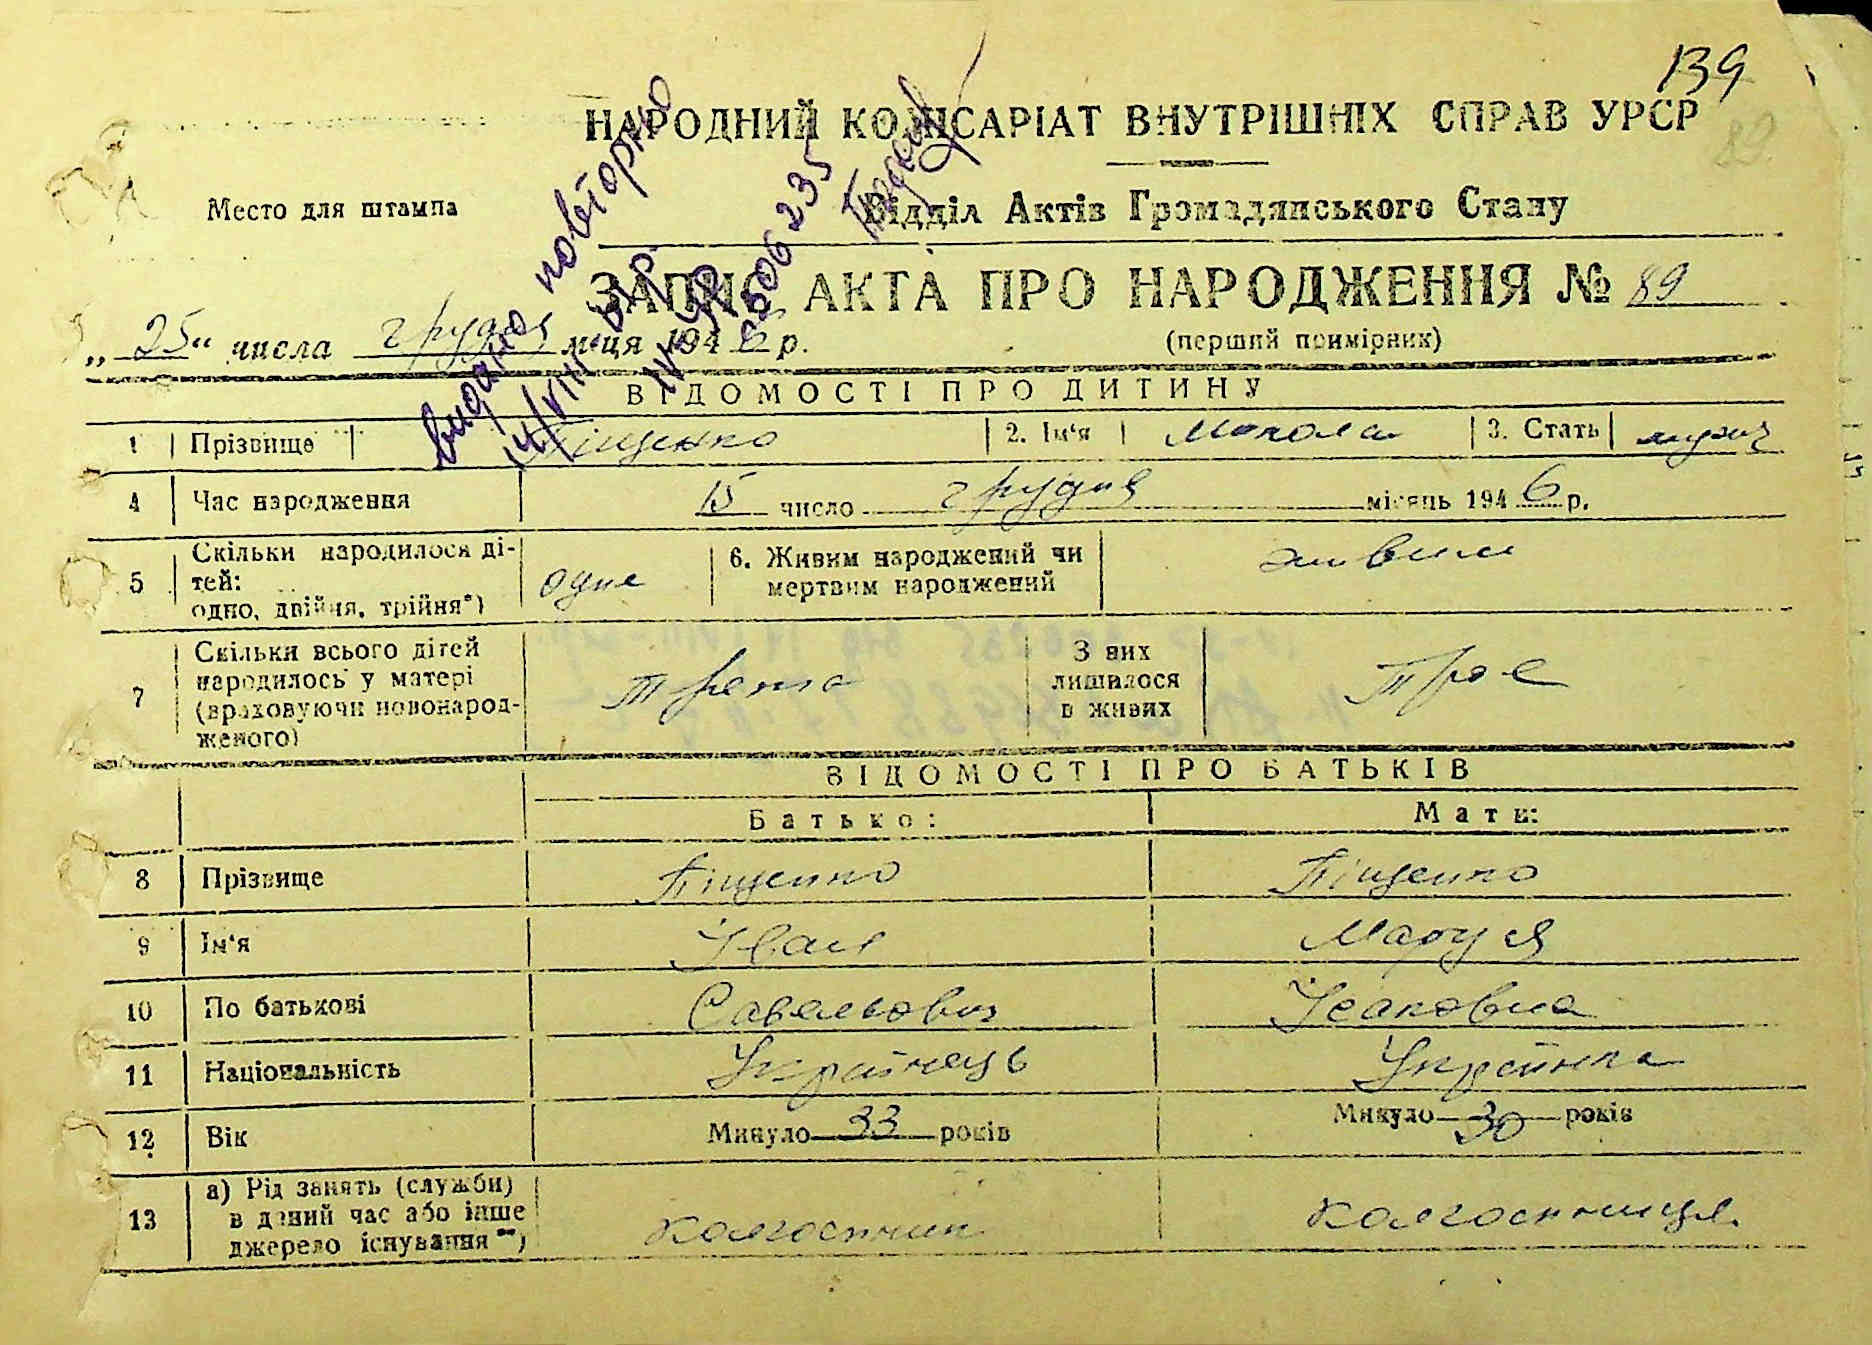 139
НАРОДНИЙ КОМІСАРІАТ ВНУТРІШНІХ СПРАВ УРСР
89
Место для штампа
Відділ Актів Громадянського Стану
ЗАПИС АКТА ПРО НАРОДЖЕННЯ № 89
„25“ числа грудня м-ця 1946 р.
(перший примірник)
видано повторно
14/VIII
606235
ВІДОМОСТІ ПРО ДИТИНУ
1 Прізвище Піщенко 2. Ім‘я Микола 3. Стать мужч
4 Час народження 15 число грудня місяць 1946 р.
5 Скільки народилося дітей: одно, двійня, трійня*) одне 6. Живим народжений чи мертвим народжений живим
7 Скільки всього дітей народилось у матері (враховуючи новонародженого) третя З них лишилося в живих Троє
ВІДОМОСТІ ПРО БАТЬКІВ
Батько: Мати:
8 Прізвище Піщенко Піщенко
9 Ім‘я Іван Маруся
10 По батькові Савельович Ісаковна
11 Національність Українець Українка
12 Вік Минуло 33 років Минуло 30 років
13 а) Рід занять (служби) в даний час або інше джерело існування**) колгоспник колгоспниця